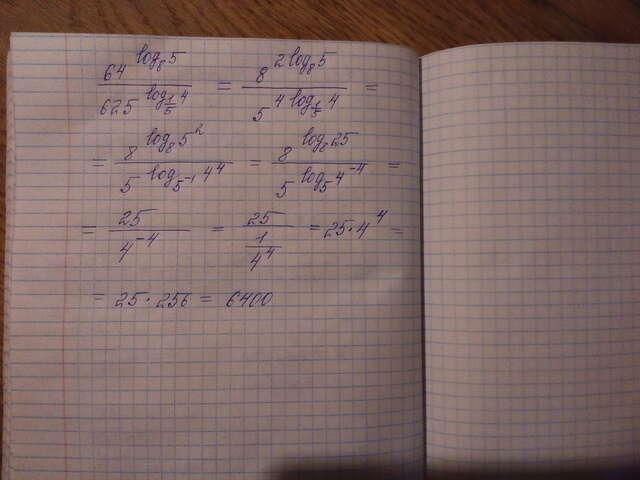 64^{log_8 5} / 625^{log_{1/5} 4} = 8^{2 log_8 5} / 5^{4 log_{1/5} 4} =
= 8^{log_8 5^2} / 5^{log_{5^{-1}} 4^4} = 8^{log_8 25} / 5^{log_5 4^{-4}} =
= 25 / 4^{-4} = 25 / (1 / 4^4) = 25 · 4^4 =
= 25 · 256 = 6400